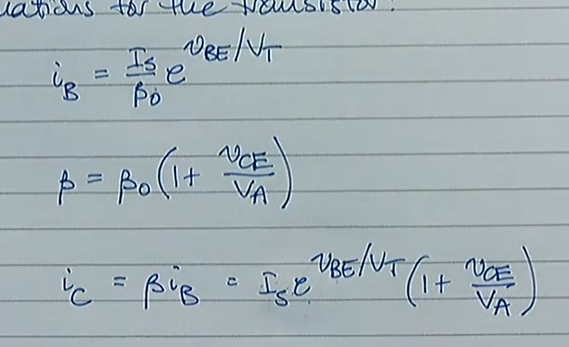 uations for the transistor.
i_B = I_S/β_0 e^{v_BE/V_T}
β = β_0 (1 + v_CE/V_A)
i_C = β i_B = I_S e^{v_BE/V_T} (1 + v_CE/V_A)